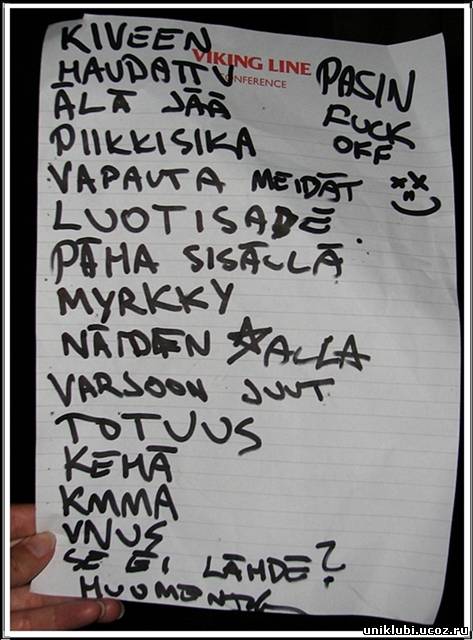 KIVEEN
HAUDATTU
VIKING LINE
CONFERENCE
PASIN
FUCK
OFF
ÄLÄ JÄÄ
PIIKKISIKA
VAPAUTA MEIDÄT
LUOTISADE
PÄHA SISÄLLÄ
MYRKKY
NÄIDEN ALLA
VARJOON JUUT
TOTUUS
KEHÄ
KMMA
VNUS
SE EI LÄHDE?
HUOMENTA
uniklubi.ucoz.ru